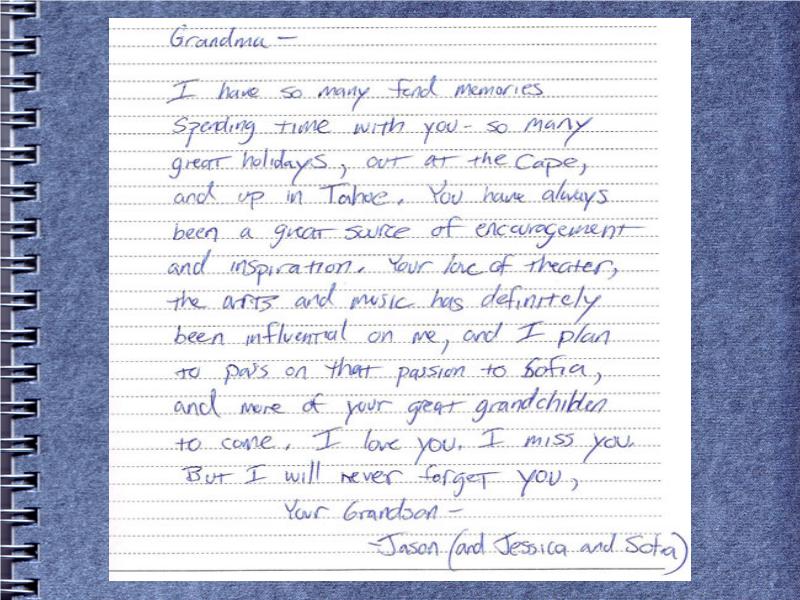 Grandma —
I have so many fond memories
spending time with you - so many
great holidays, out at the Cape,
and up in Tahoe. You have always
been a great source of encouragement
and inspiration. Your love of theater,
the arts and music has definitely
been influential on me, and I plan
to pass on that passion to Sofia,
and more of your great grandchildren
to come. I love you. I miss you.
But I will never forget you,
Your Grandson —
-Jason (and Jessica and Sofia)